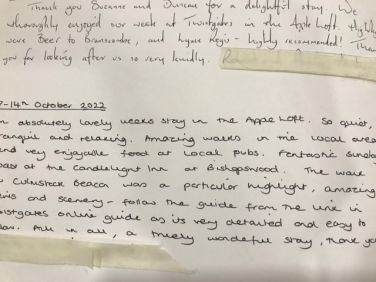 Thank you Suzanne and Duncan for a delightful stay. We
thoroughly enjoyed our week at Twistgates in the Apple Loft. Highlights
were Beer to Branscombe, and Lyme Regis - highly recommended! Thank
you for looking after us so very kindly.
7-14th October 2022
n absolutely lovely weeks stay in the Apple Loft. So quiet,
tranquil and relaxing. Amazing walks in the local area
and very enjoyable food at local pubs. Fantastic Sunday
roast at the Candlelight Inn at Bishopswood. The walk
o Culmstock Beacon was a particular highlight, amazing
ews and scenery - follow the guide from the link in
wistgates online guide as its very detailed and easy to
llow. All in all, a truely wonderful stay, thank you